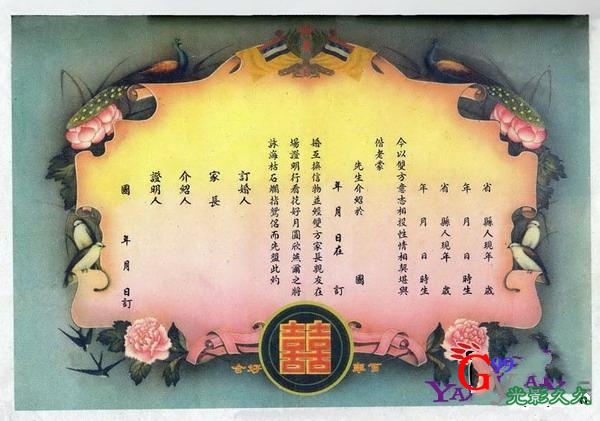 省 縣人現年 歲
年 月 日 時生
省 縣人現年 歲
年 月 日 時生
今以雙方意志相投性情相契堪與
偕老蒙
先生介紹於 國
年 月 日在 訂
婚互換信物並經雙方家長親友在
場證明行看花好月圓欣燕爾之將
詠海枯石爛指鴛侶而先盟此約
訂婚人
家長
介紹人
證明人
國 年 月 日訂
百年好合
囍
光影久久